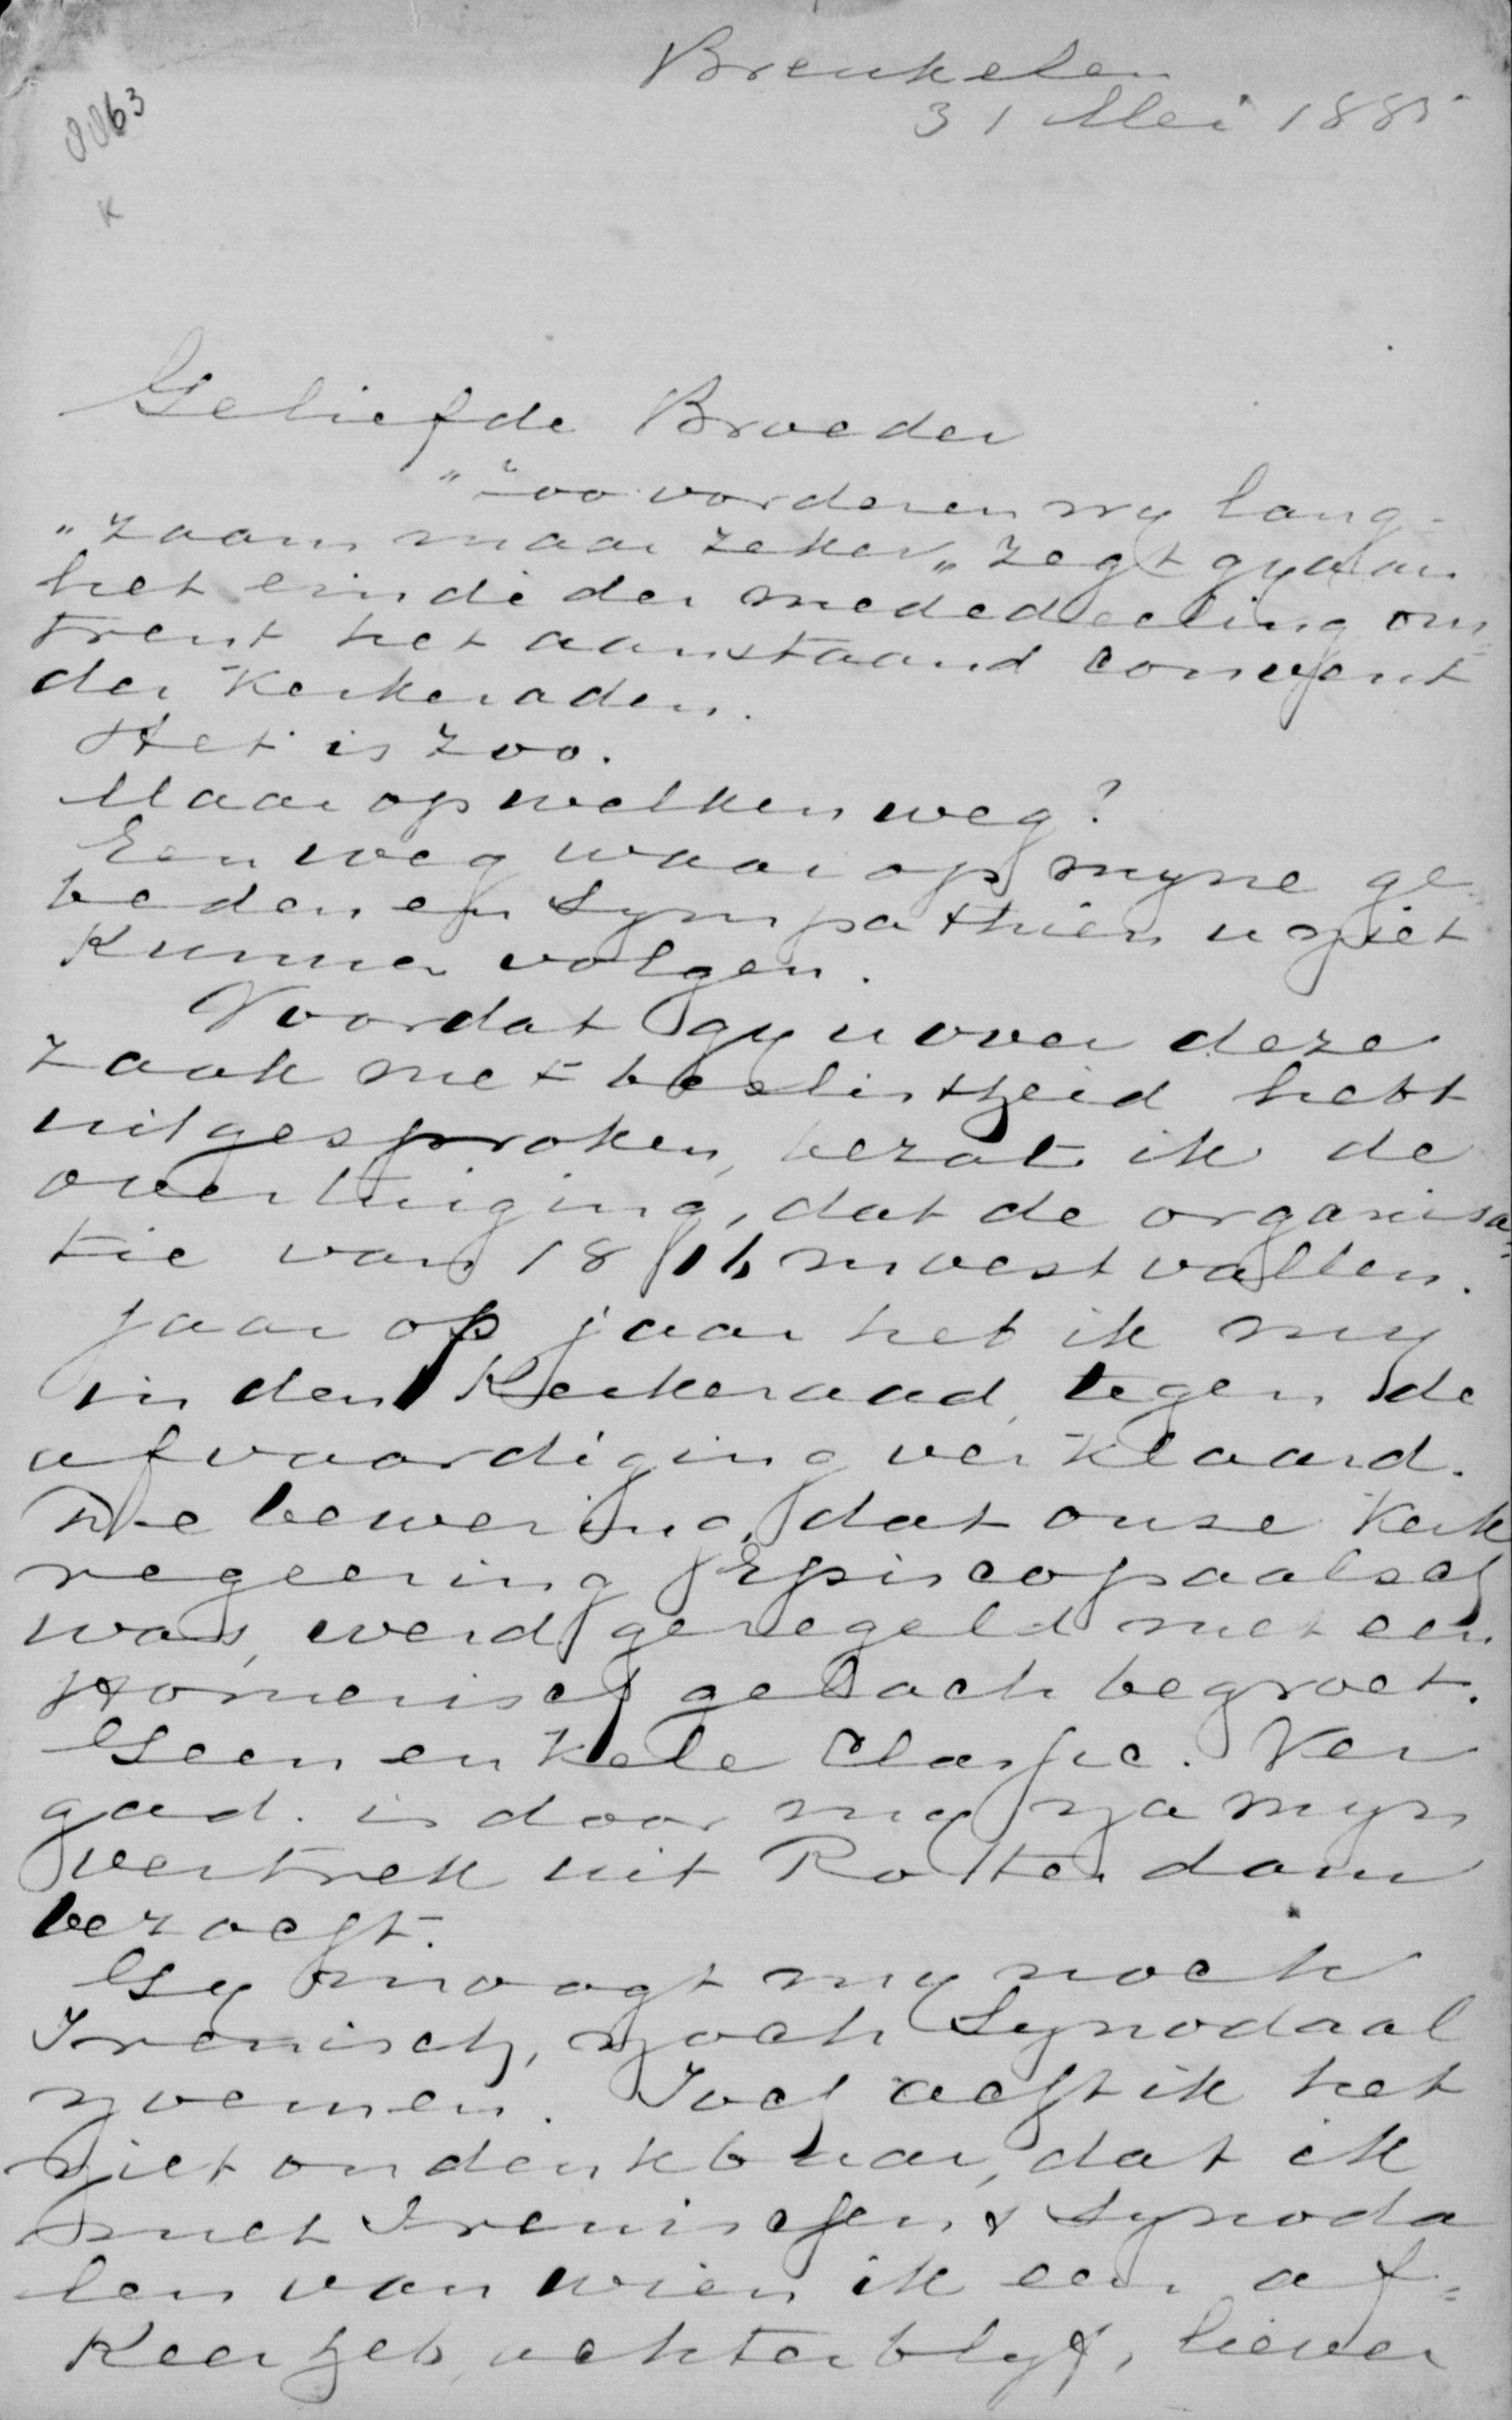 Breukelen
31 Mei 1885
0063
K
Geliefde Broeder
"Zoo vorderen wy lang-
"zaam maar zeker" zegt gy aan
het einde der mededeeling om=
trent het aanstaand convent
der Kerkeraden.
Het is zoo.
Maar op welken weg?
Een weg waarop myne ge=
beden en sympathien u niet
Kunnen volgen.
Voordat gy u over deze
zaak met beslistheid hebt
uitgesproken, bezat ik de
overtuiging, dat de organisa=
tie van 1816 moest vallen.
Jaar op jaar heb ik my
in den Kerkeraad, tegen de
afvaardiging verklaard.
De bewering, dat onze Kerk
regeering Episcopaalsch
was, werd geregeld met een
Homerisch gelach begroet.
Geen enkele Classic. Ver
gad. is door my na myn
vertrek uit Rotterdam
bezocht.
Gy moogt my noch
Irenisch, noch Synodaal
noemen. Toch acht ik het
niet ondenkbaar, dat ik
met Irenischen & Synoda
len van wien ik een af=
Keer heb, achterblyf, liever